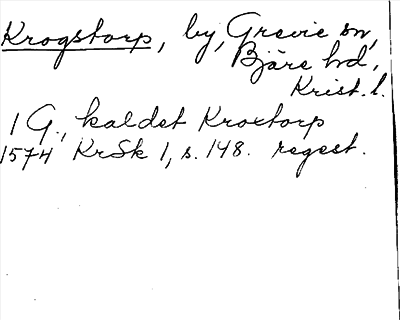 Krogstorp, by, Grevie sn,
Bjäre hd,
Krist. l.
1 G., kaldet Kroxtorp
1574 KrSk 1, s. 148. regest.